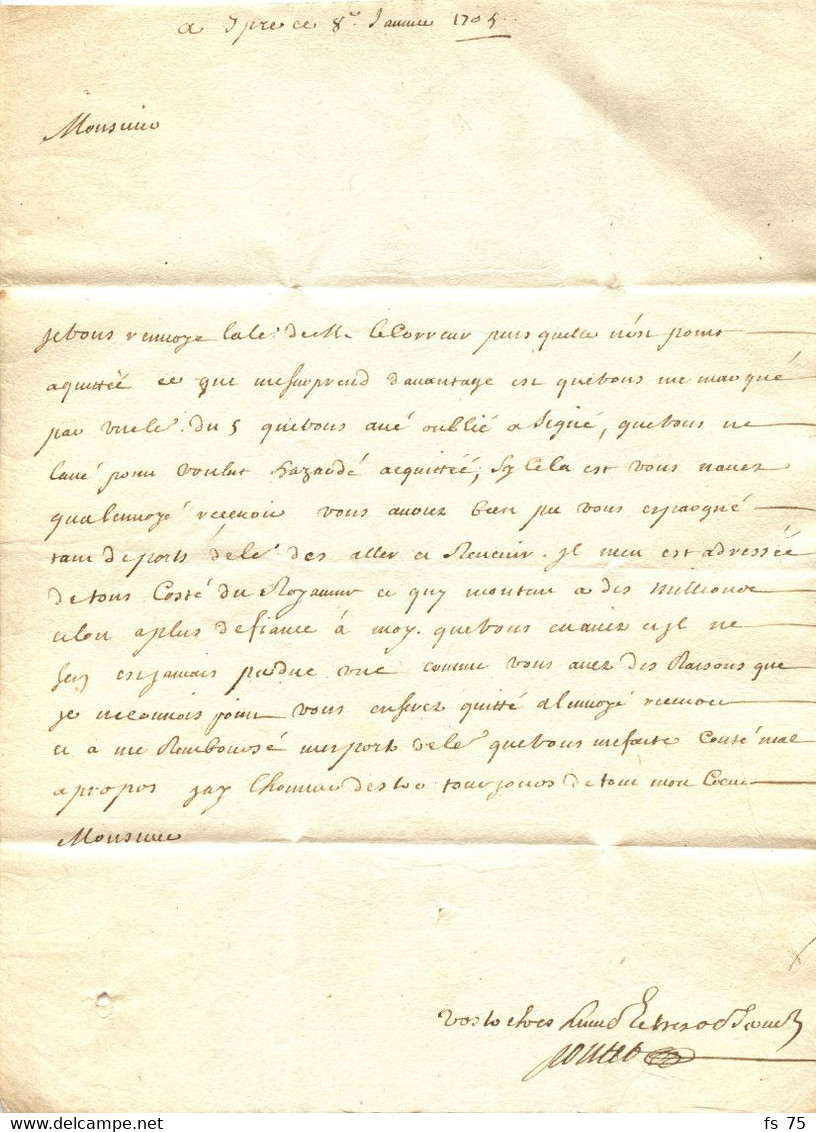 a Ipre ce 8e. Janvier 1705
Monsieur
je vous renvoye la le. de Mr. le Correur puis quelle n'est point
aquitté ce que me surprend davantage est que vous me marqué
par vre le. du 5 que vous avé oublié a signé, que vous ne
lavé point voulut hazardé acquitté, Sy Cela est vous navez
qua lenvoyé recevoir vous auriez bien pu vous espargné
tant de ports de le. des aller et Revenir. Jl men est adressée
de tous Costé du Royaume ce quy monte a des millions
et lon a plus defiance à moy. que vous en aviez et jl ne
sen est jamais perdue une comme vous avez des Raisons que
je ne connois point vous en serez quitté a lenvoyé recevoir
et a me Remboursé mes ports de le. que vous me faite Couté mal
a propos jay lhonneur destre tousjours de tout mon Coeur
Monsieur
vostre tres humb. et tres obeis
fs 75
www.delcampe.net